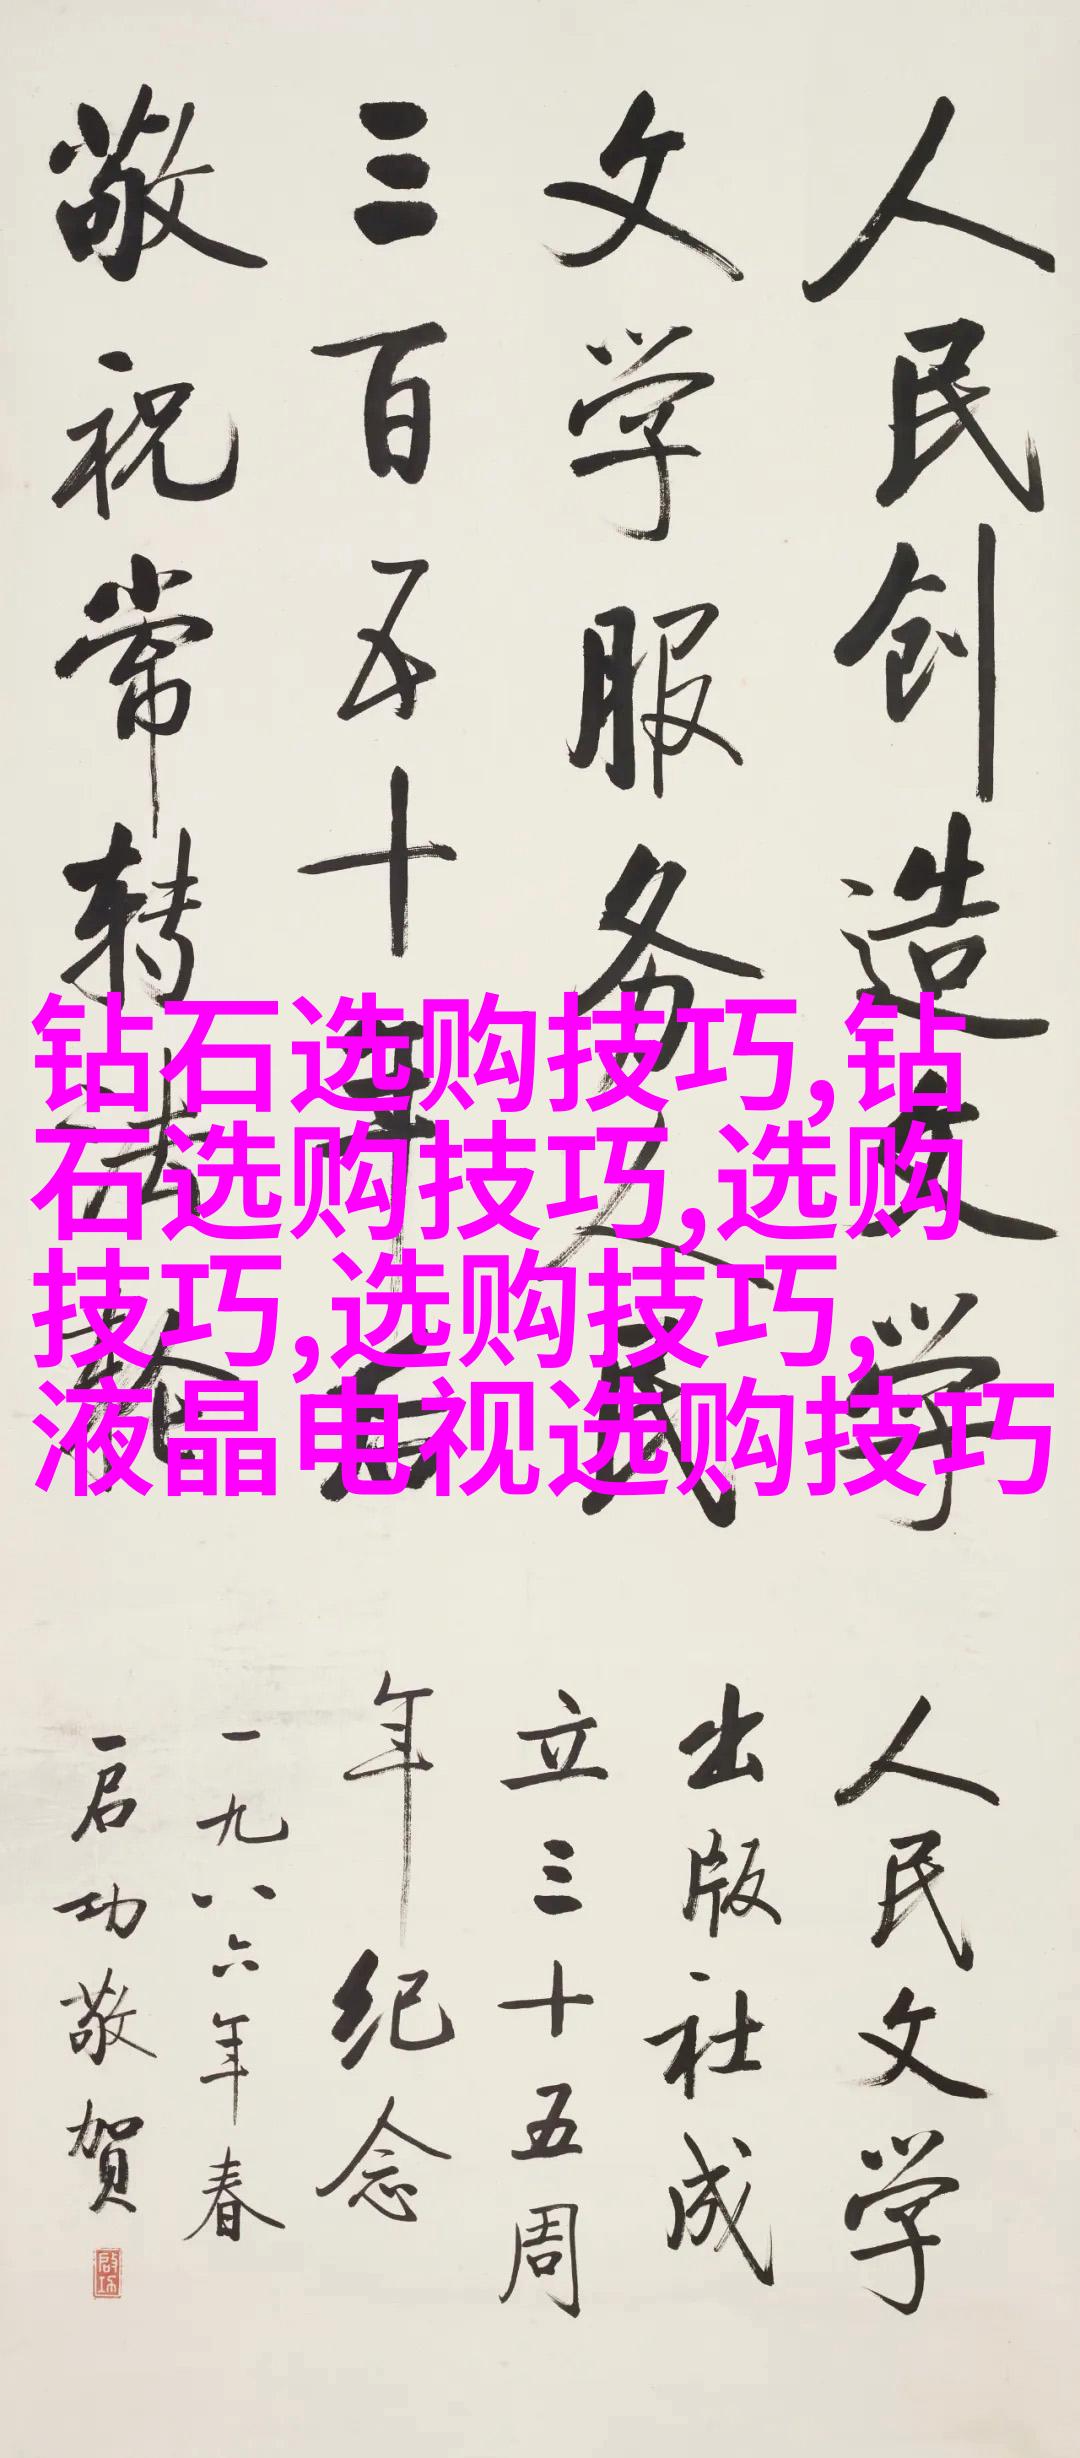 人民创造文学
文学服务人民
三百五十年后
敬祝常转法轮
钻石选购技巧,钻
石选购技巧,选购
技巧,选购技巧,
液晶电视选购技巧
人民文学
出版社成
立三十五周
年纪念
一九八六年春
启功敬賀
啟功